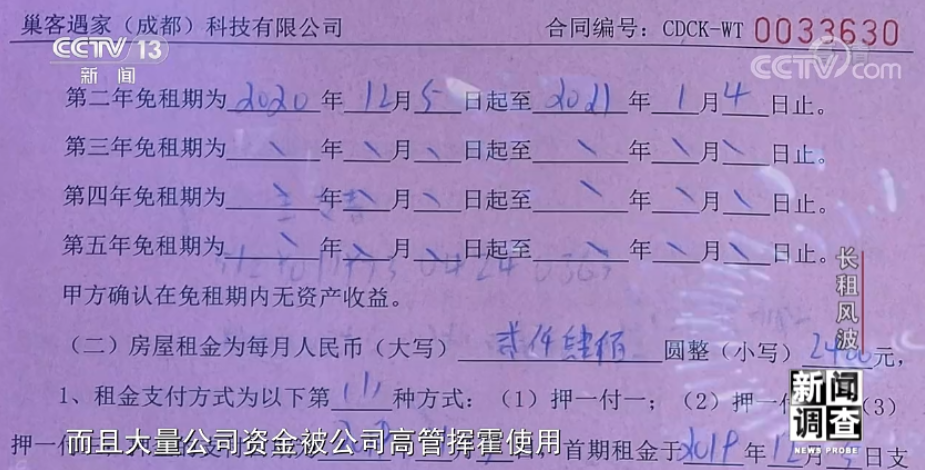 巢客遇家（成都）科技有限公司 合同编号：CDCK-WT 0033630
CCTV 13
新闻
CCTV.com
第二年免租期为2020年12月5日起至2021年1月4日止。
第三年免租期为、年、月、日起至、年、月、日止。
第四年免租期为、年、月、日起至、年、月、日止。
第五年免租期为、年、月、日起至、年、月、日止。
甲方确认在免租期内无资产收益。
（二）房屋租金为每月人民币（大写）贰仟肆佰圆整（小写）2400元，
1、租金支付方式为以下第（1）种方式：（1）押一付一；（2）押一付 （3）
押一付 首期租金于2019年12月 日支
长租风波
新闻调查
NEWS PROBE
而且大量公司资金被公司高管挥霍使用